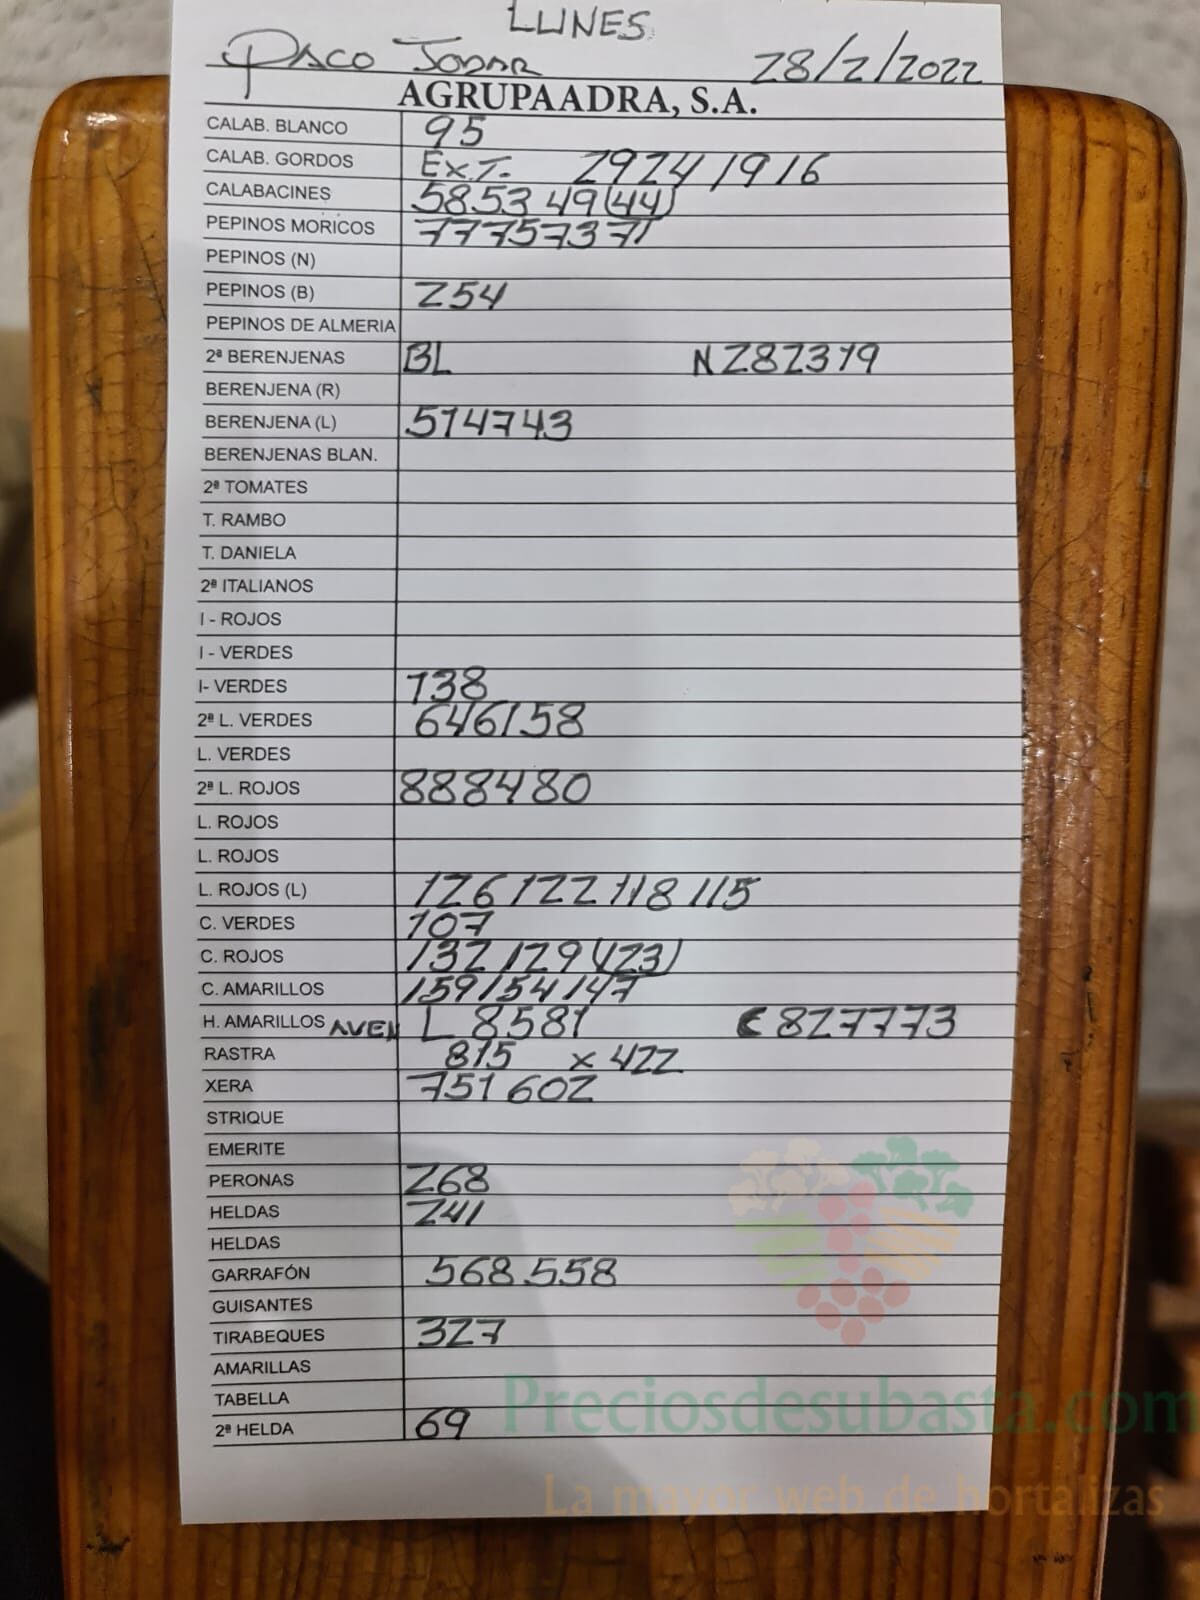 LUNES
PACO JODAR 28/2/2022
AGRUPAADRA, S.A.
CALAB. BLANCO 95
CALAB. GORDOS EXT. 29 24 19 16
CALABACINES 58 53 49 (44)
PEPINOS MORICOS 77 75 73 71
PEPINOS (N)
PEPINOS (B) 254
PEPINOS DE ALMERIA
2ª BERENJENAS BL N 28 23 19
BERENJENA (R)
BERENJENA (L) 51 47 43
BERENJENAS BLAN.
2ª TOMATES
T. RAMBO
T. DANIELA
2ª ITALIANOS
I - ROJOS
I - VERDES
I- VERDES 138
2ª L. VERDES 64 61 58
L. VERDES
2ª L. ROJOS 88 84 80
L. ROJOS
L. ROJOS
L. ROJOS (L) 126 122 118 115
C. VERDES 107
C. ROJOS 132 129 (123)
C. AMARILLOS 159 154 147
H. AMARILLOS AVEN L 85 81 C 82 77 73
RASTRA 815 x 422
XERA 751 602
STRIQUE
EMERITE
PERONAS 268
HELDAS 241
HELDAS
GARRAFÓN 568 558
GUISANTES
TIRABEQUES 327
AMARILLAS
TABELLA
2ª HELDA 69
Preciosdesubasta.com
La mayor web de hortalizas